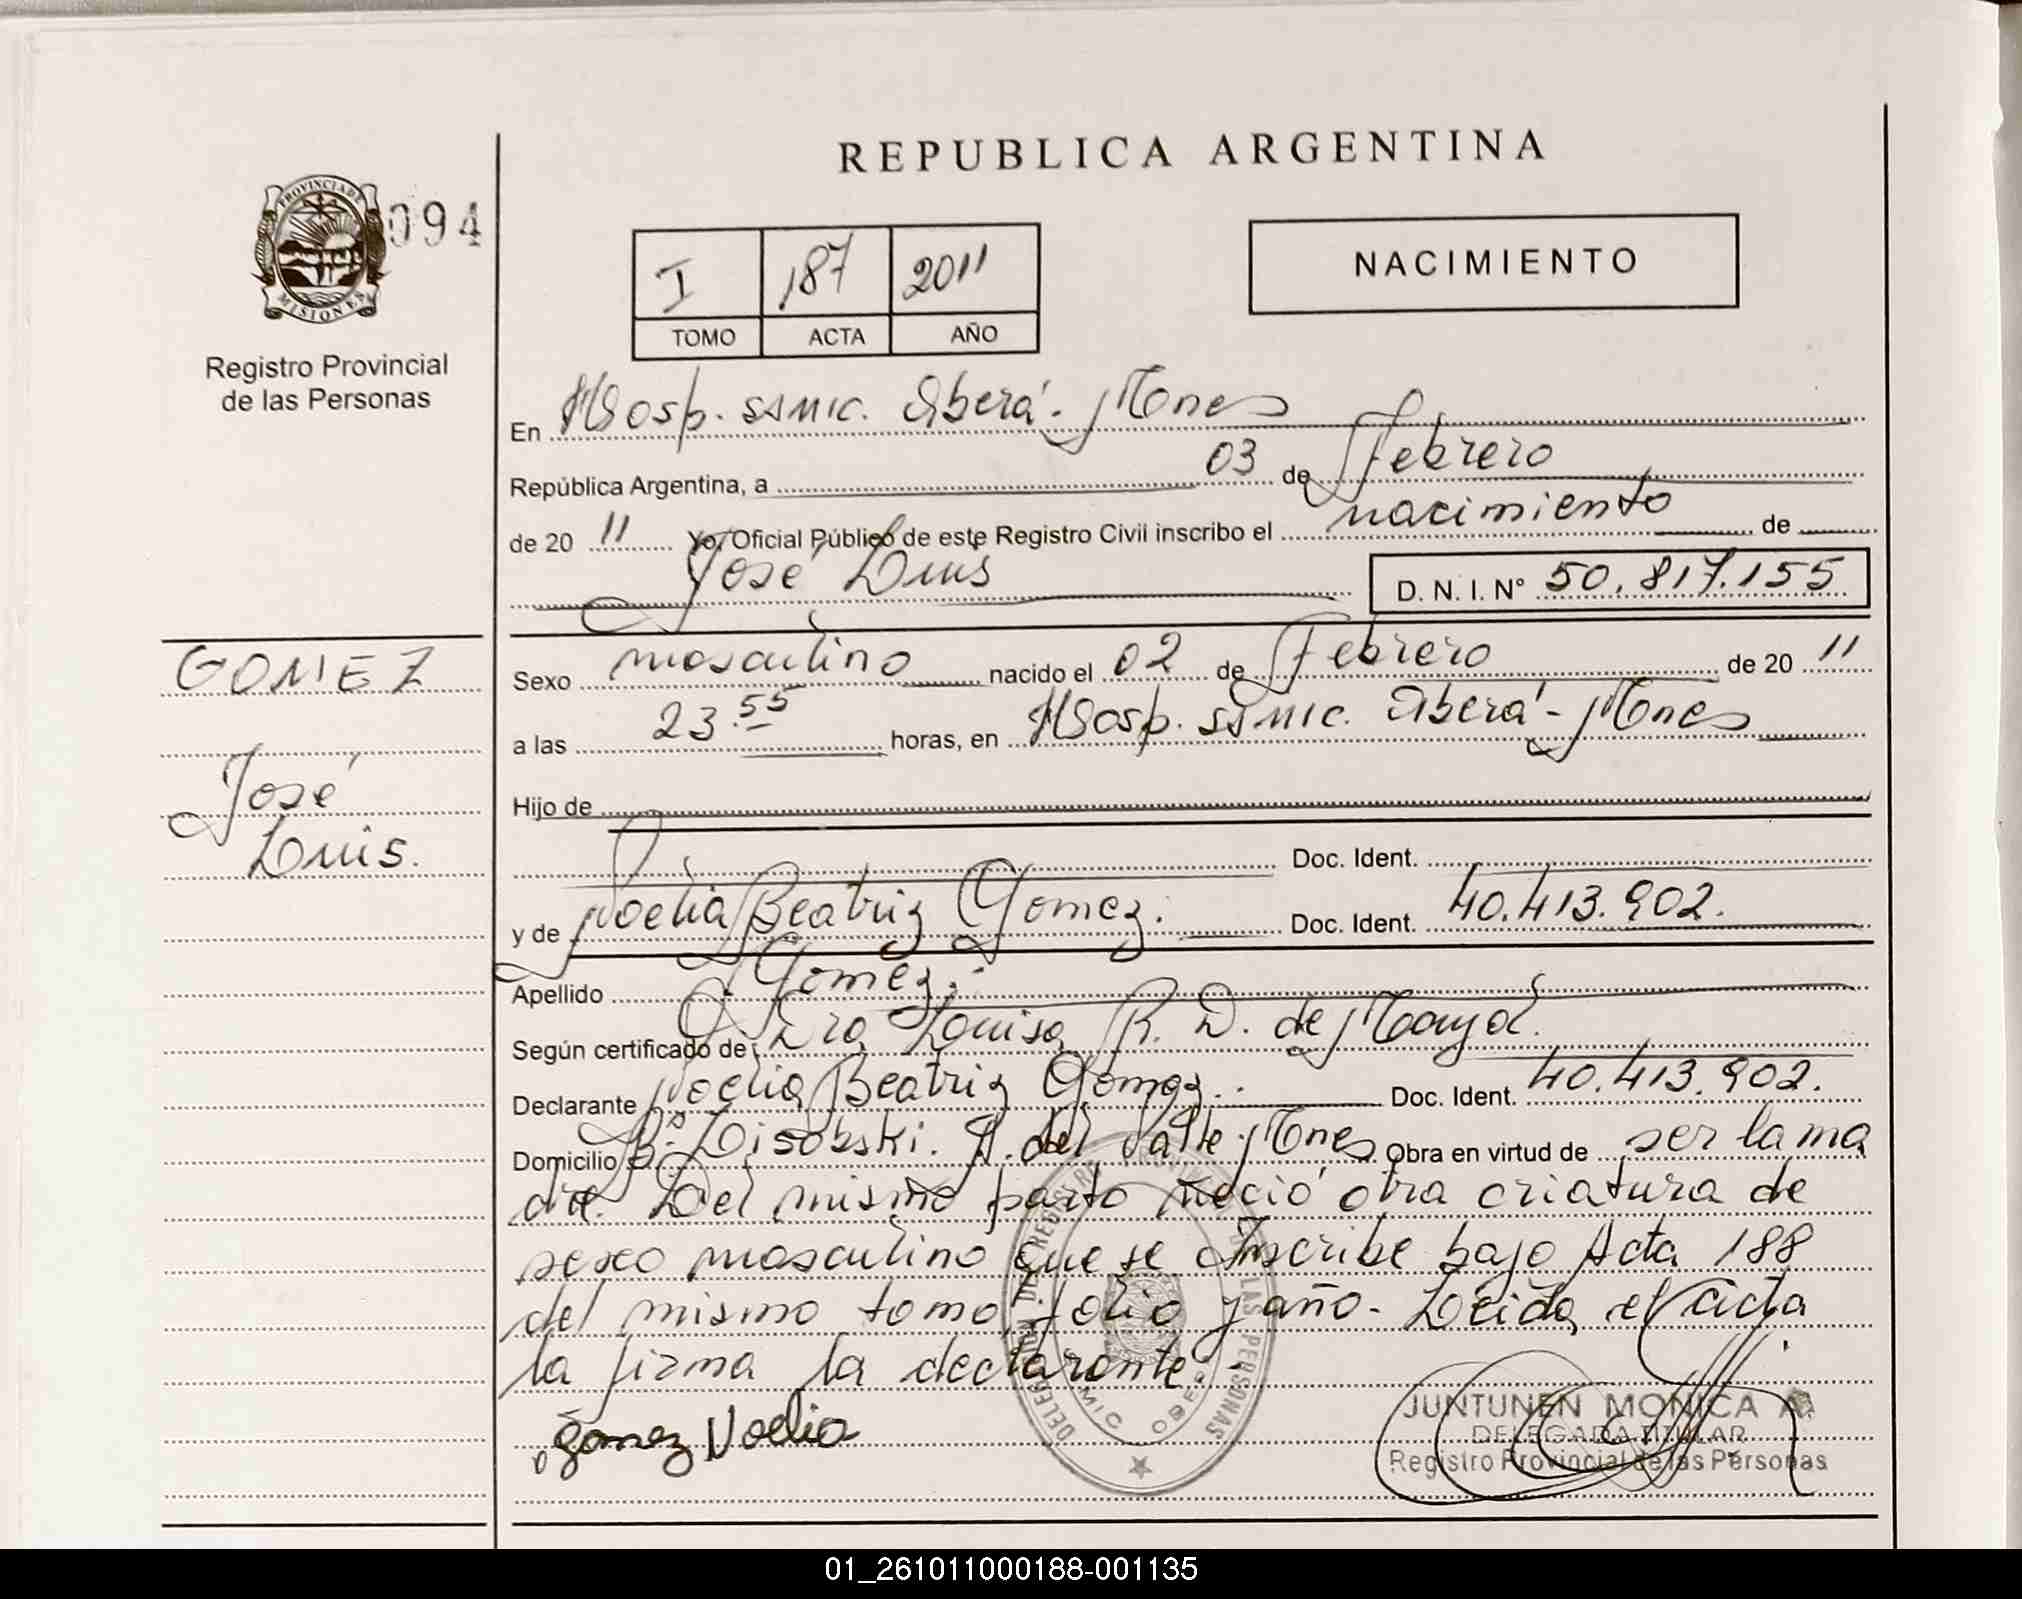 REPUBLICA ARGENTINA
PROVINCIA DE
MISIONES
094
Registro Provincial
de las Personas
I 187 2011
TOMO ACTA AÑO
NACIMIENTO
En Hosp. SAMIC. Oberá - Mnes
República Argentina, a 03 de Febrero
de 20 11 Yo, Oficial Público de este Registro Civil inscribo el nacimiento de
José Luis
D. N. I. Nº 50.817.155
GOMEZ
José
Luis.
Sexo masculino nacido el 02 de Febrero de 20 11
a las 23.55 horas, en Hosp. SAMIC. Oberá - Mnes
Hijo de
Doc. Ident.
y de Noelia Beatriz Gomez. Doc. Ident. 40.413.902.
Apellido Gomez.
Según certificado de Dra Louisa R. D. de
Declarante Noelia Beatriz Gomez. Doc. Ident. 40.413.902.
Domicilio Bº. A. del Valle Mnes Obra en virtud de ser la ma
dre. Del mismo parto nació otra criatura de
sexo masculino que se inscribe bajo Acta 188
del mismo tomo, folio y año. Leida el acta
la firma la declarante.
Gomez Noelia
JUNTUNEN MONICA A.
DELEGADA TITULAR
Registro Provincial de las Personas
01_261011000188-001135